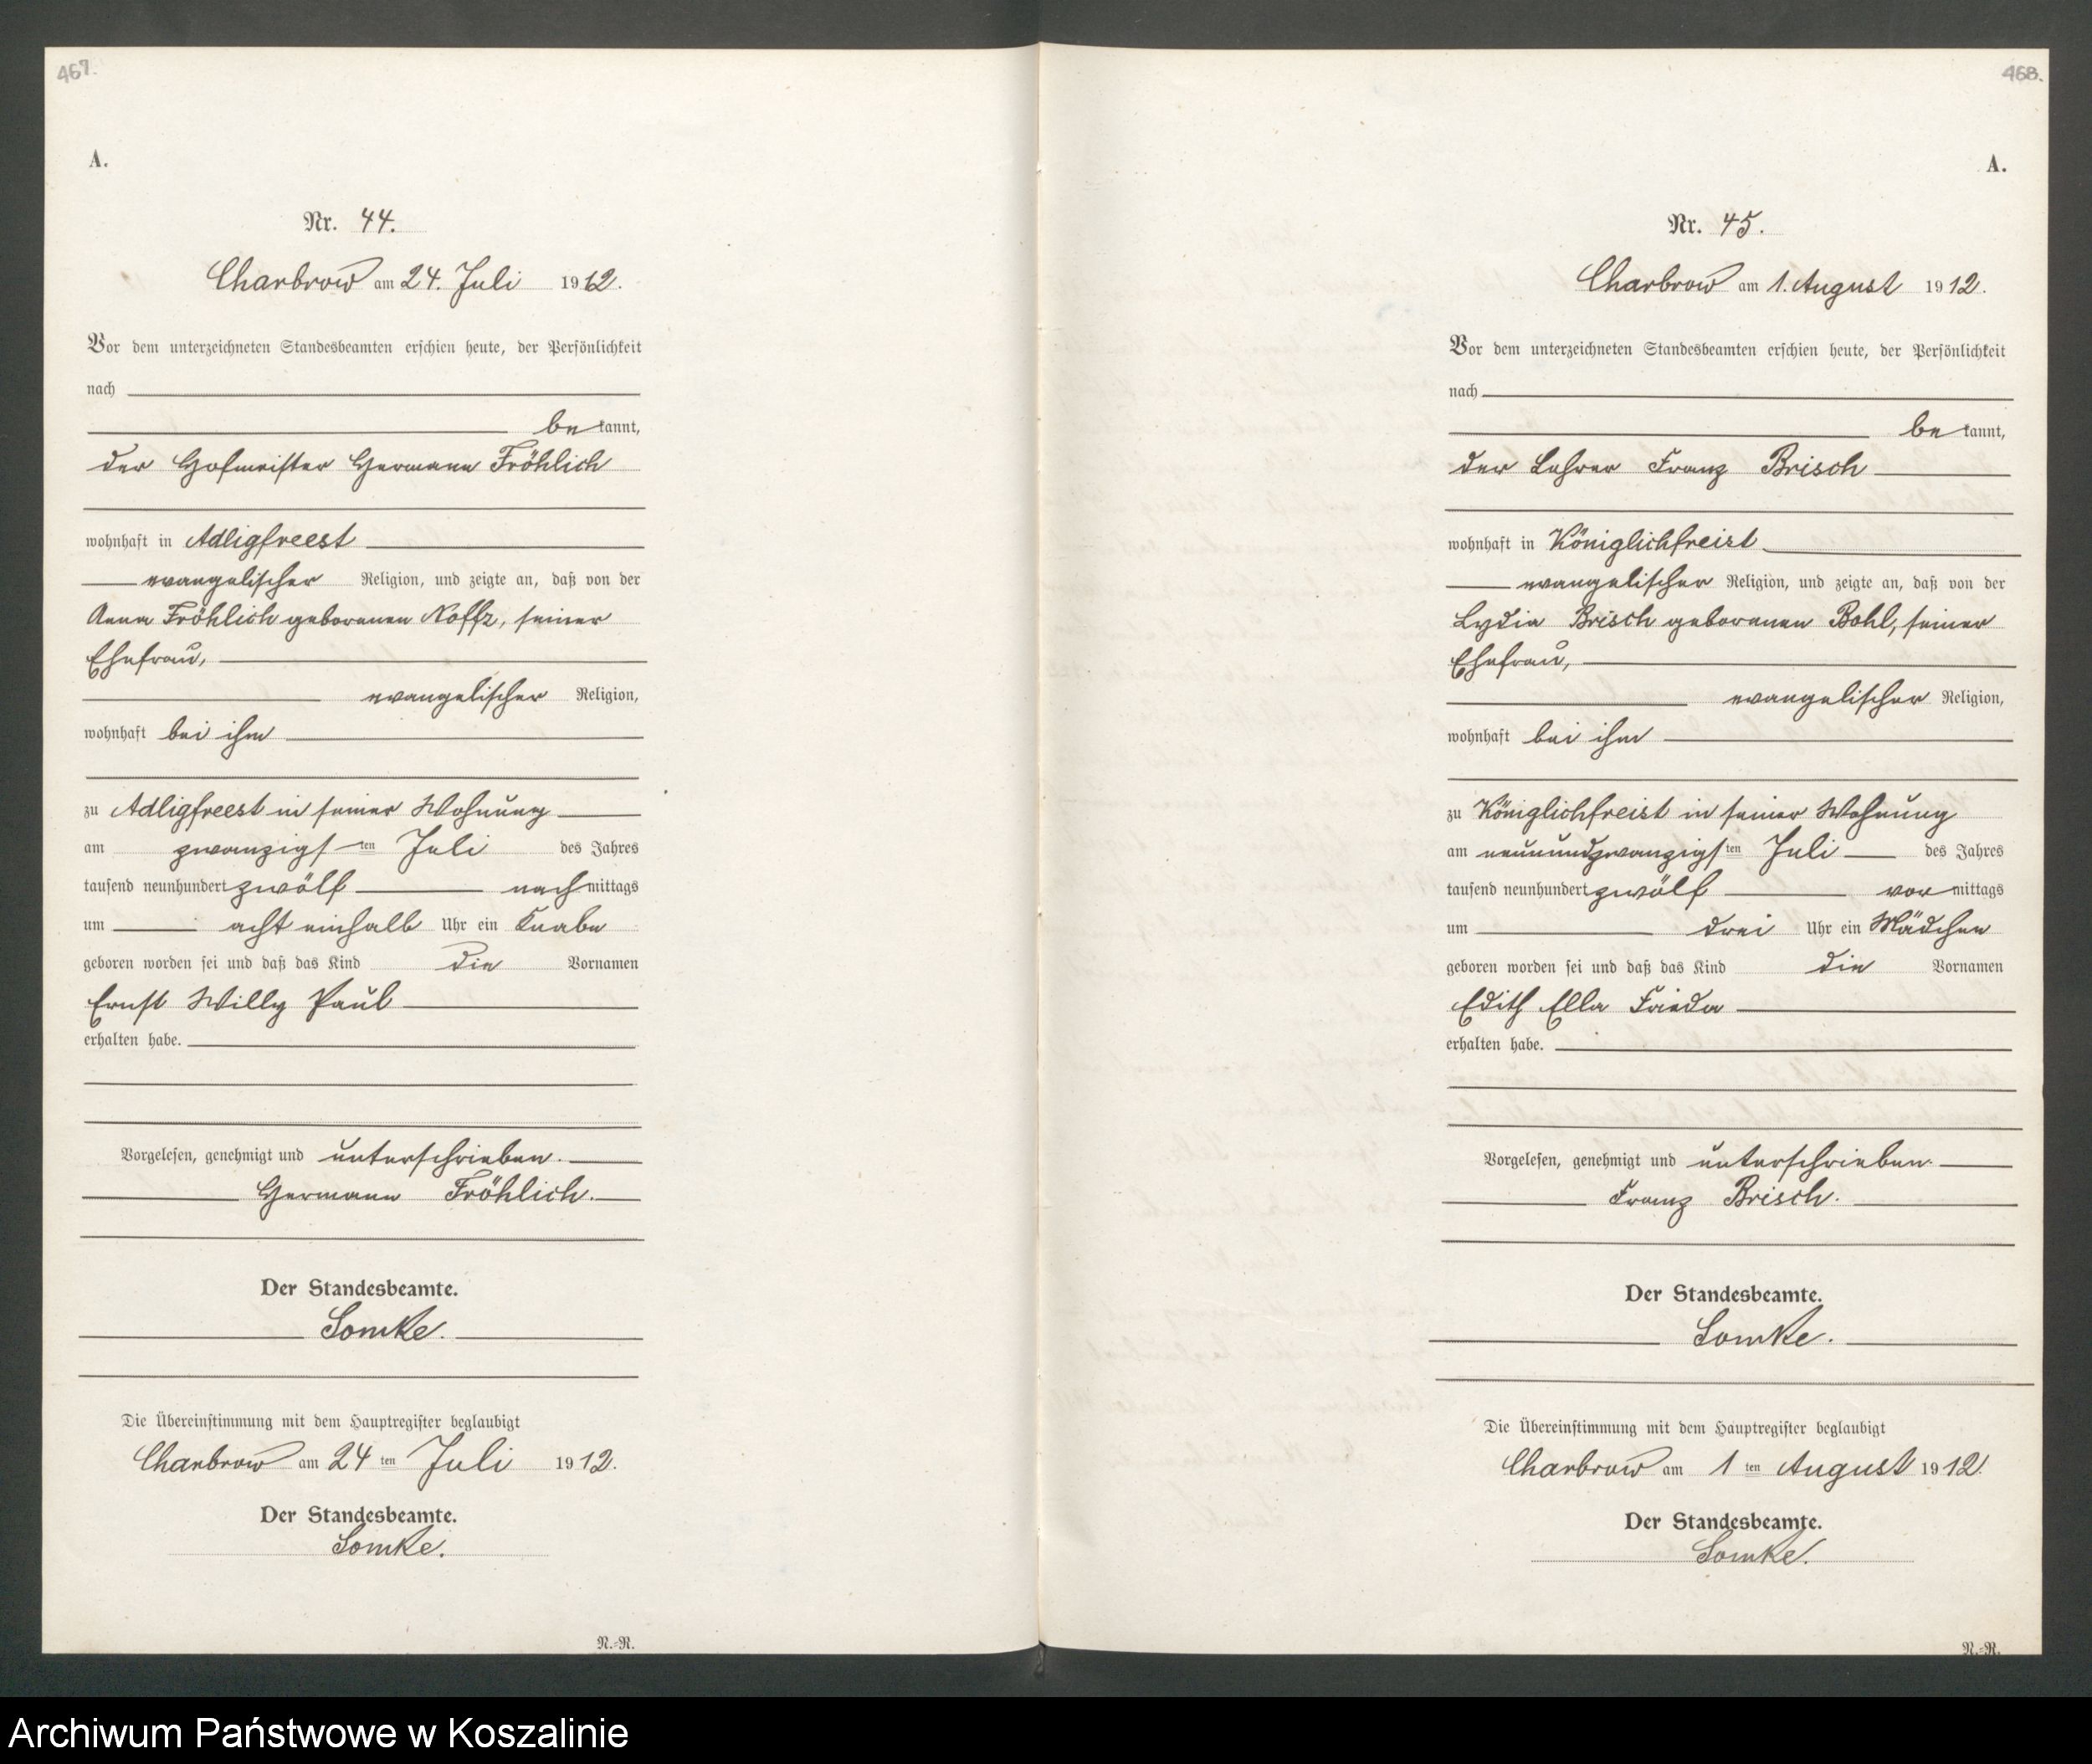 467.
A.
Nr. 44.
Charbrow am 24. Juli 1912.
Vor dem unterzeichneten Standesbeamten erschien heute, der Persönlichkeit
nach
bekannt,
der Hofmeister Hermann Fröhlich
wohnhaft in Adligfreest
evangelischer Religion, und zeigte an, daß von der
Anna Fröhlich geborenen Koffz, seiner
Ehefrau,
evangelischer Religion,
wohnhaft bei ihm
zu Adligfreest in seiner Wohnung
am zwanzigsten Juli des Jahres
tausend neunhundert zwölf nachmittags
um acht einhalb Uhr ein Knabe
geboren worden sei und daß das Kind die Vornamen
Ernst Willy Paul
erhalten habe.
Vorgelesen, genehmigt und unterschrieben.
Hermann Fröhlich.
Der Standesbeamte.
Lomke.
Die Übereinstimmung mit dem Hauptregister beglaubigt
Charbrow am 24 ten Juli 1912.
Der Standesbeamte.
Lomke.
N.-R.
468.
A.
Nr. 45.
Charbrow am 1. August 1912.
Vor dem unterzeichneten Standesbeamten erschien heute, der Persönlichkeit
nach
bekannt,
der Lehrer Franz Brisch
wohnhaft in Königlichfreist
evangelischer Religion, und zeigte an, daß von der
Lydia Brisch geborenen Bohl, seiner
Ehefrau,
evangelischer Religion,
wohnhaft bei ihm
zu Königlichfreist in seiner Wohnung
am neunundzwanzigsten Juli des Jahres
tausend neunhundert zwölf vormittags
um drei Uhr ein Mädchen
geboren worden sei und daß das Kind die Vornamen
Edith Ella Frieda
erhalten habe.
Vorgelesen, genehmigt und unterschrieben.
Franz Brisch.
Der Standesbeamte.
Lomke.
Die Übereinstimmung mit dem Hauptregister beglaubigt
Charbrow am 1 ten August 1912.
Der Standesbeamte.
Lomke.
N.-R.
Archiwum Państwowe w Koszalinie